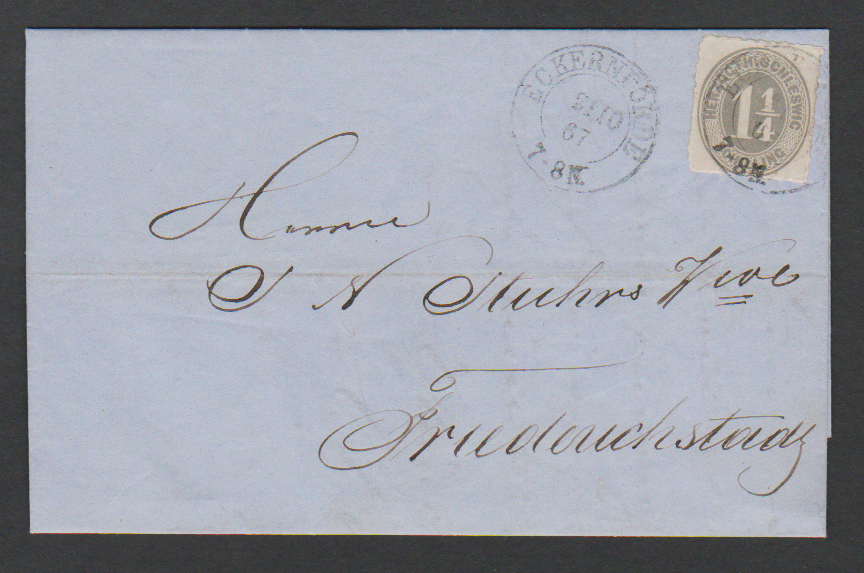 ECKERNFÖRDE
21 10
67
7-8 N.
HERZOGTH. SCHLESWIG
1 1/4
SCHILLING
7-8 N.
Herrn
J N Stuhrs Wwe
Friederichstadt